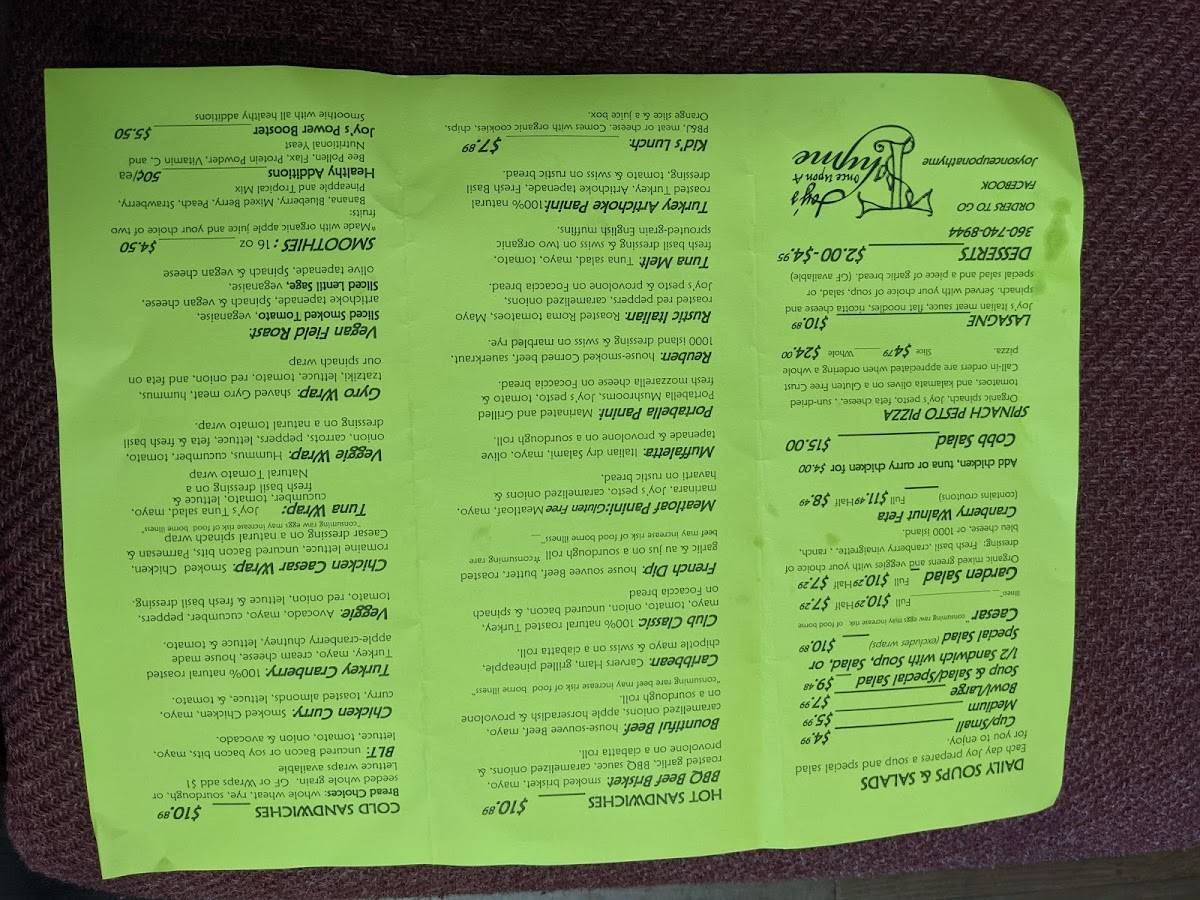 DAILY SOUPS & SALADS
Each day Joy prepares a soup and special salad
for you to enjoy.
Cup/Small $4.99
Medium $5.99
Bowl/Large $7.99
Soup & Salad/Special Salad $9.48
1/2 Sandwich with Soup, Salad, or
Special Salad (excludes wraps) $10.89
Caesar "consuming raw eggs may increase risk of food borne
illness" Full $10.29 Half $7.29
Garden Salad Full $10.29 Half $7.29
Organic mixed greens and veggies with your choice of
dressing: Fresh basil, cranberry vinaigrette, , ranch,
bleu cheese, or 1000 island.
Cranberry Walnut Feta
(contains croutons) Full $11.49 Half $8.49
Add chicken, tuna or curry chicken for $4.00
Cobb Salad $15.00
SPINACH PESTO PIZZA
Organic spinach, Joy's pesto, feta cheese, , sun-dried
tomatoes, and kalamata olives on a Gluten Free Crust
Call-in orders are appreciated when ordering a whole
pizza. Slice $4.79 Whole $24.00
LASAGNE $10.89
Joy's Italian meat sauce, flat noodles, ricotta cheese and
spinach. Served with your choice of soup, salad, or
special salad and a piece of garlic bread. (GF available)
DESSERTS $2.00-$4.95
360-740-8944
ORDERS TO GO
FACEBOOK
Joysonceuponathyme
Joy's
Once Upon A
Thyme
HOT SANDWICHES $10.89
BBQ Beef Brisket: smoked brisket, mayo,
roasted garlic, BBQ sauce, caramelized onions, &
provolone on a ciabatta roll
Bountiful Beef: house-souvee Beef, mayo,
caramelized onions, apple horseradish & provolone
on a sourdough roll.
"consuming rare beef may increase risk of food borne illness"
Caribbean: Carvers Ham, grilled pineapple,
chipotle mayo & swiss on a ciabatta roll.
Club Classic: 100% natural roasted Turkey,
mayo, tomato, onion, uncured bacon, & spinach
on Focaccia bread
French Dip: house souvee Beef, butter, roasted
garlic & au jus on a sourdough roll "consuming rare
beef may increase risk of food borne illness"
Meatloaf Panini: Gluten Free Meatloaf, mayo,
marinara, Joy's pesto, caramelized onions &
havarti on rustic bread.
Muffaletta: Italian dry Salami, mayo, olive
tapenade & provolone on a sourdough roll.
Portabella Panini: Marinated and Grilled
Portabella Mushrooms, Joy's pesto, tomato &
fresh mozzarella cheese on Focaccia bread.
Reuben: house-smoked Corned beef, sauerkraut,
1000 island dressing & swiss on marbled rye.
Rustic Italian: Roasted Roma tomatoes, Mayo
roasted red peppers, caramelized onions,
Joy's pesto & provolone on Focaccia bread.
Tuna Melt: Tuna salad, mayo, tomato,
fresh basil dressing & swiss on two organic
sprouted-grain English muffins.
Turkey Artichoke Panini: 100% natural
roasted Turkey, Artichoke tapenade, Fresh Basil
dressing, tomato & swiss on rustic bread.
Kid's Lunch: $7.89
PB&J, meat or cheese. Comes with organic cookies, chips,
Orange slice & a juice box.
COLD SANDWICHES $10.89
Bread Choices: whole wheat, rye, sourdough, or
seeded whole grain. GF or Wraps add $1
Lettuce wraps available
BLT: uncured Bacon or soy bacon bits, mayo,
lettuce, tomato, onion & avocado.
Chicken Curry: Smoked Chicken, mayo,
curry, toasted almonds, lettuce, & tomato.
Turkey Cranberry: 100% natural roasted
Turkey, mayo, cream cheese, house made
apple-cranberry chutney, lettuce & tomato
Veggie: Avocado, mayo, cucumber, peppers,
tomato, red onion, lettuce & fresh basil dressing.
Chicken Caesar Wrap: Smoked Chicken,
romaine lettuce, uncured Bacon bits, Parmesan &
Caesar dressing on a natural spinach wrap
"consuming raw eggs may increase risk of food borne illness"
Tuna Wrap: Joy's Tuna salad, mayo,
cucumber, tomato, lettuce &
fresh basil dressing on a
Natural Tomato wrap
Veggie Wrap: Hummus, cucumber, tomato,
onion, carrots, peppers, lettuce, feta & fresh basil
dressing on a natural tomato wrap.
Gyro Wrap: shaved Gyro meat, hummus,
tzatziki, lettuce, tomato, red onion, and feta on
our spinach wrap
Vegan Field Roast:
Sliced Smoked Tomato, veganaise,
artichoke tapenade, Spinach & vegan cheese.
Sliced Lentil Sage, veganaise,
olive tapenade, Spinach & vegan cheese
SMOOTHIES : 16 oz $4.50
*Made with organic apple juice and your choice of two
fruits:
Banana, Blueberry, Mixed Berry, Peach, Strawberry,
Pineapple and Tropical Mix
Healthy Additions 50¢/ea
Bee Pollen, Flax, Protein Powder, Vitamin C, and
Nutritional Yeast
Joy's Power Booster $5.50
Smoothie with all healthy additions